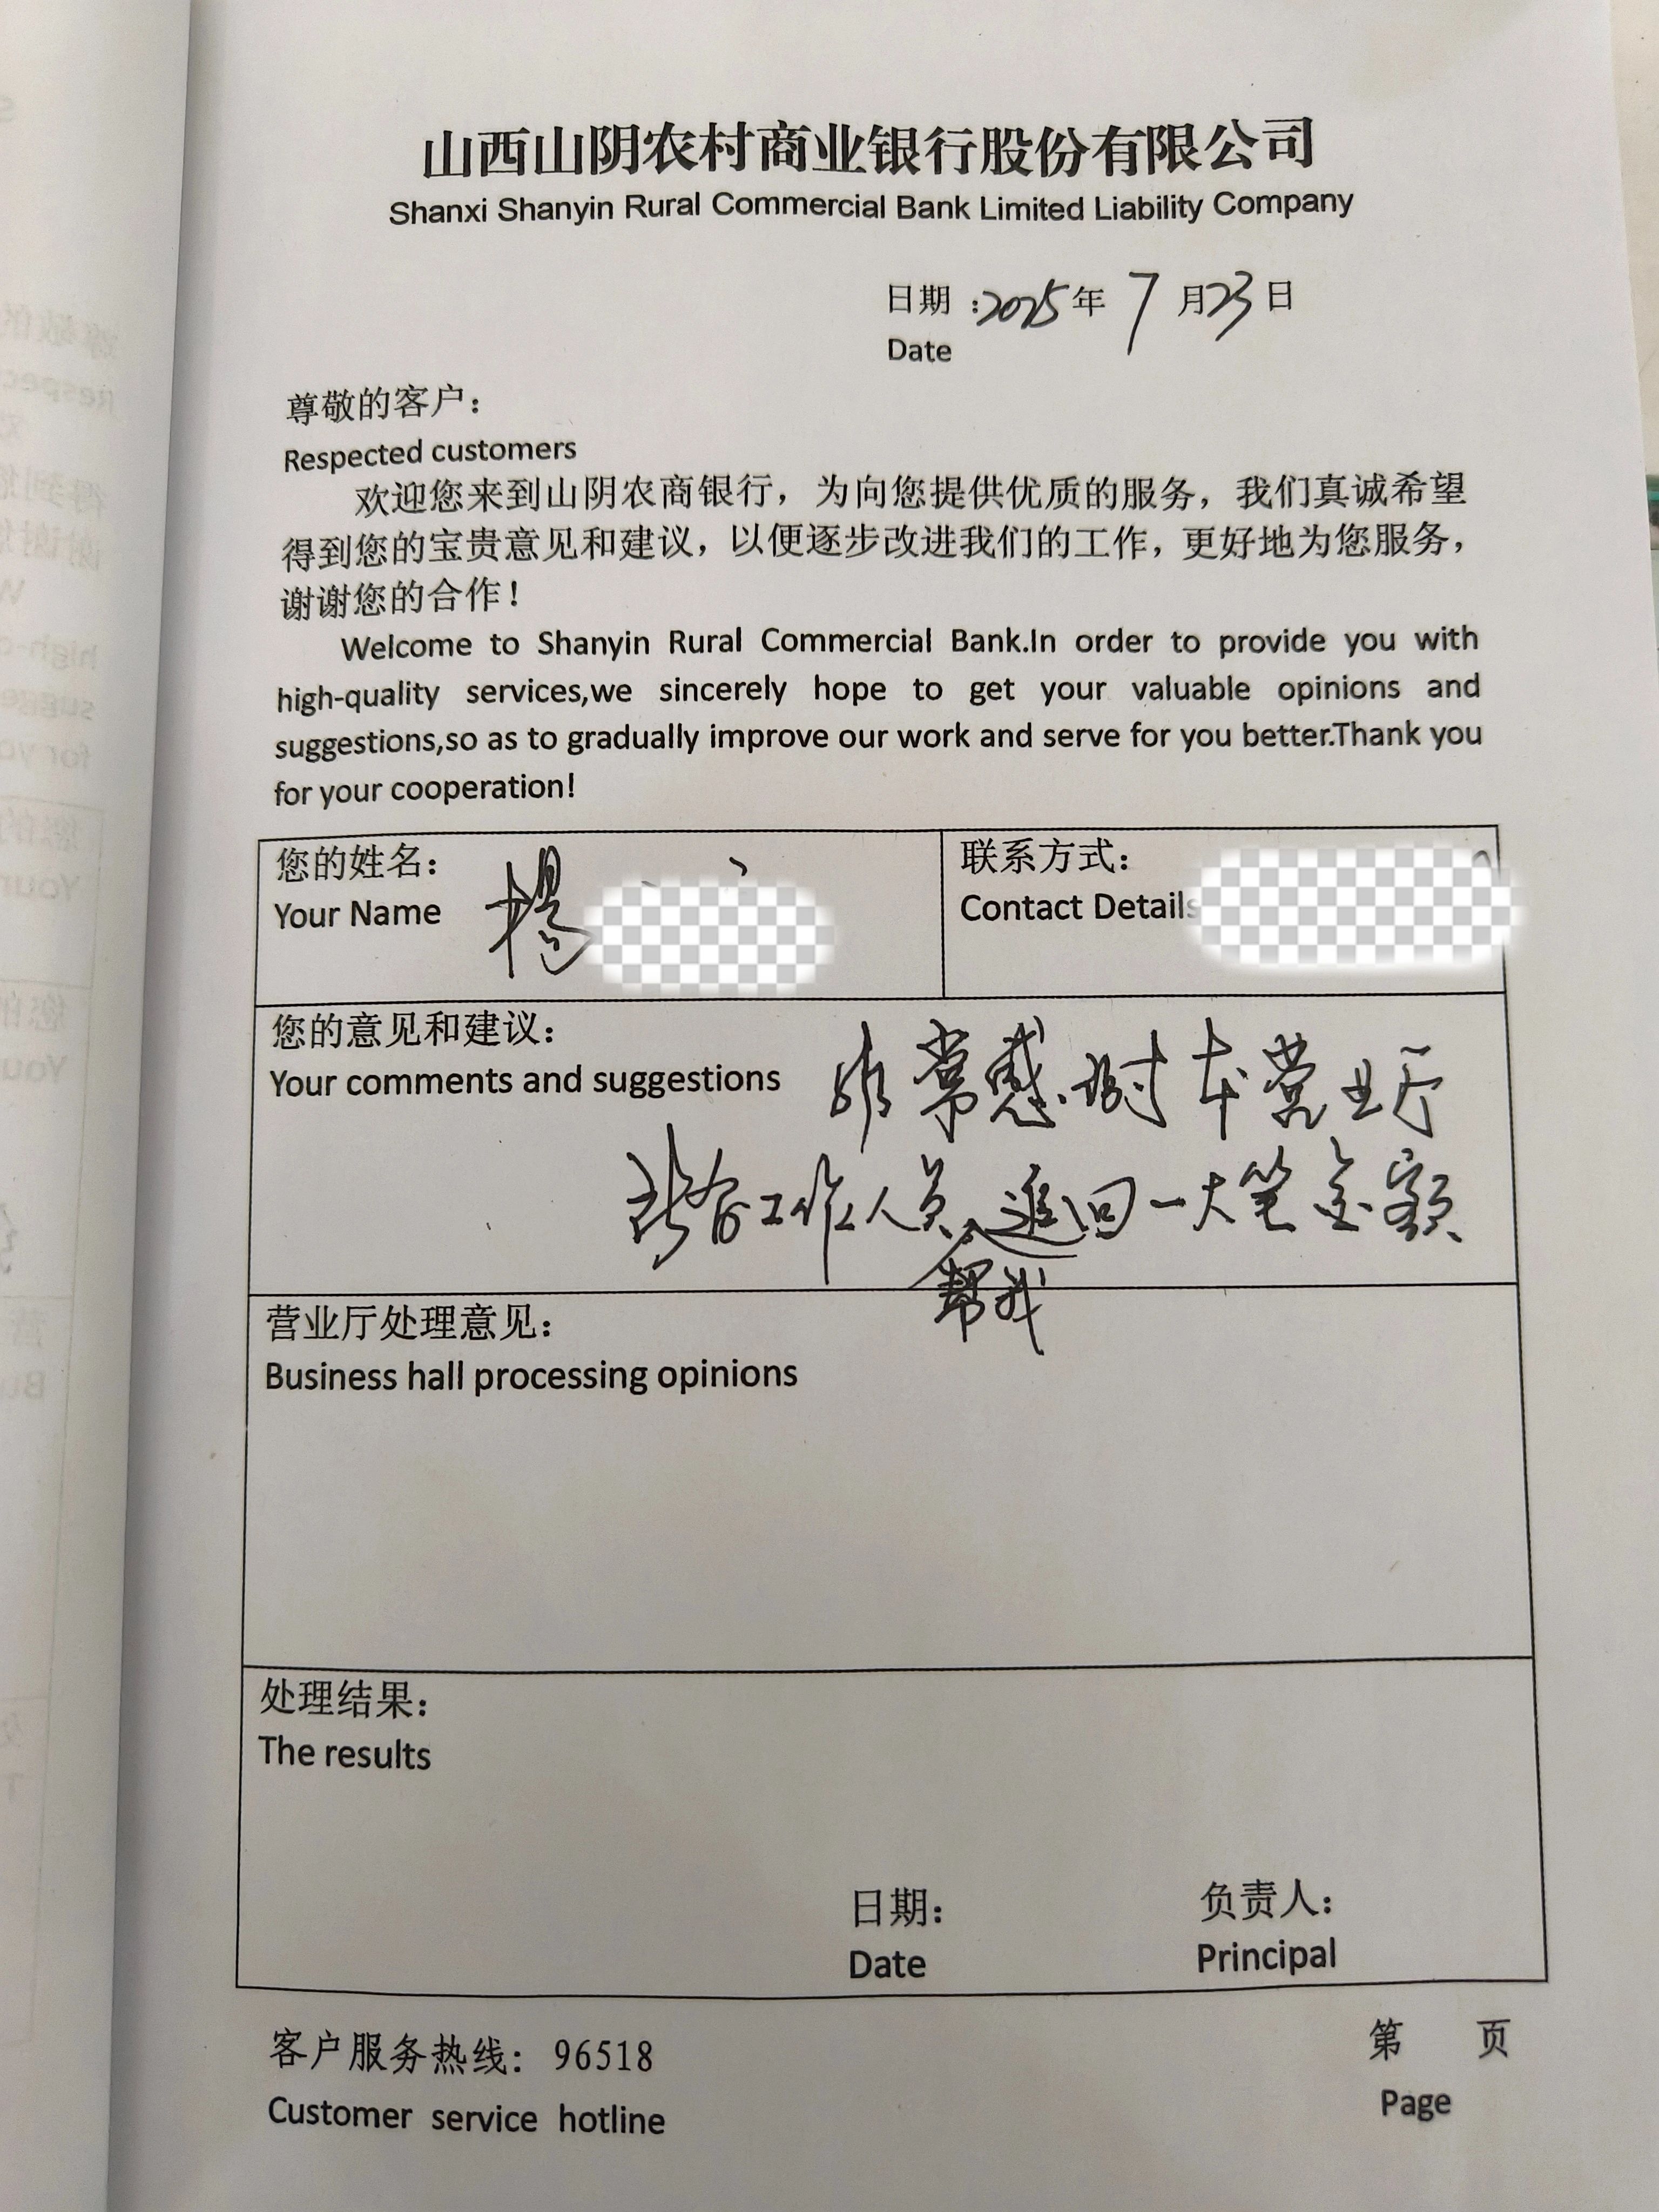 山西山阴农村商业银行股份有限公司
Shanxi Shanyin Rural Commercial Bank Limited Liability Company
日期：2025年 7 月23日
Date
尊敬的客户：
Respected customers
欢迎您来到山阴农商银行，为向您提供优质的服务，我们真诚希望
得到您的宝贵意见和建议，以便逐步改进我们的工作，更好地为您服务，
谢谢您的合作！
Welcome to Shanyin Rural Commercial Bank.In order to provide you with
high-quality services,we sincerely hope to get your valuable opinions and
suggestions,so as to gradually improve our work and serve for you better.Thank you
for your cooperation!
您的姓名： 杨
Your Name
联系方式：
Contact Details
您的意见和建议：
Your comments and suggestions 非常感谢本营业厅
工作人员追回一大笔金额
帮我
营业厅处理意见：
Business hall processing opinions
处理结果：
The results
日期： 负责人：
Date Principal
客户服务热线：96518 第 页
Customer service hotline Page